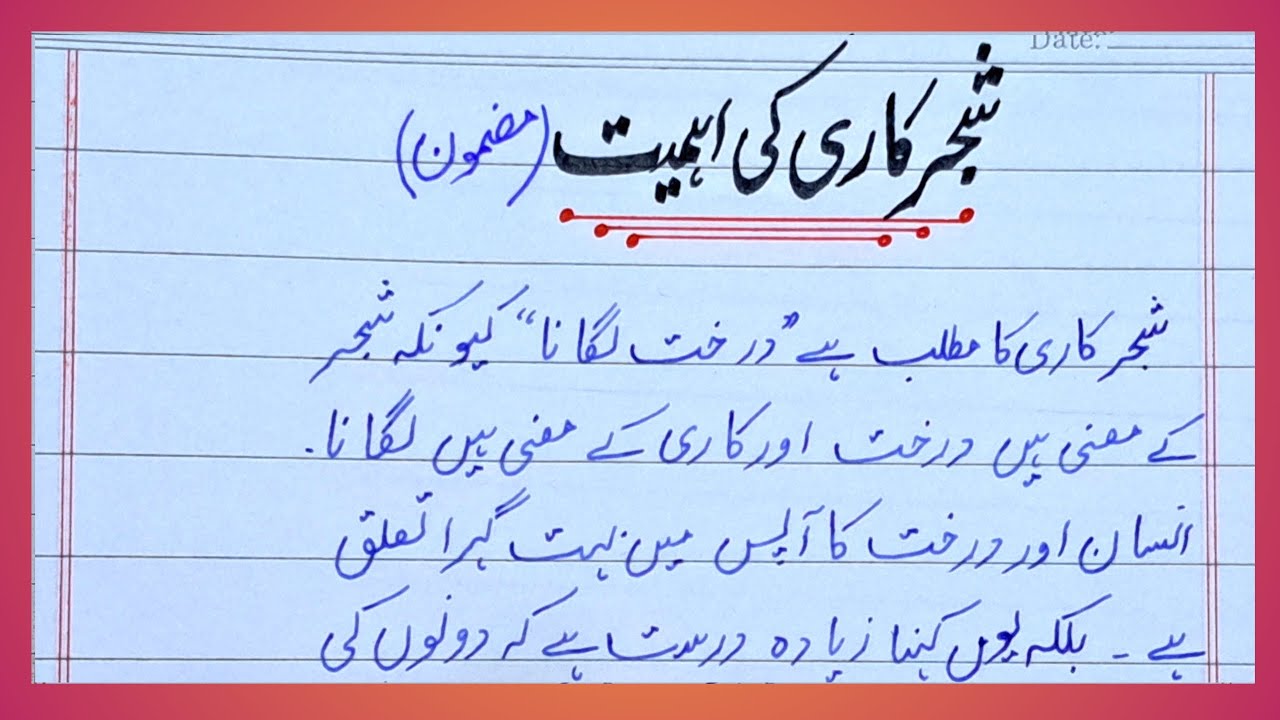 Date:
شجر کاری کی اہمیت (مضمون)
شجر کاری کا مطلب ہے "درخت لگانا" کیونکہ شجر
کے معنی ہیں درخت اور کاری کے معنی ہیں لگانا۔
انسان اور درخت کا آپس میں بہت گہرا تعلق
ہے ۔ بلکہ یوں کہنا زیادہ درست ہے کہ دونوں کی